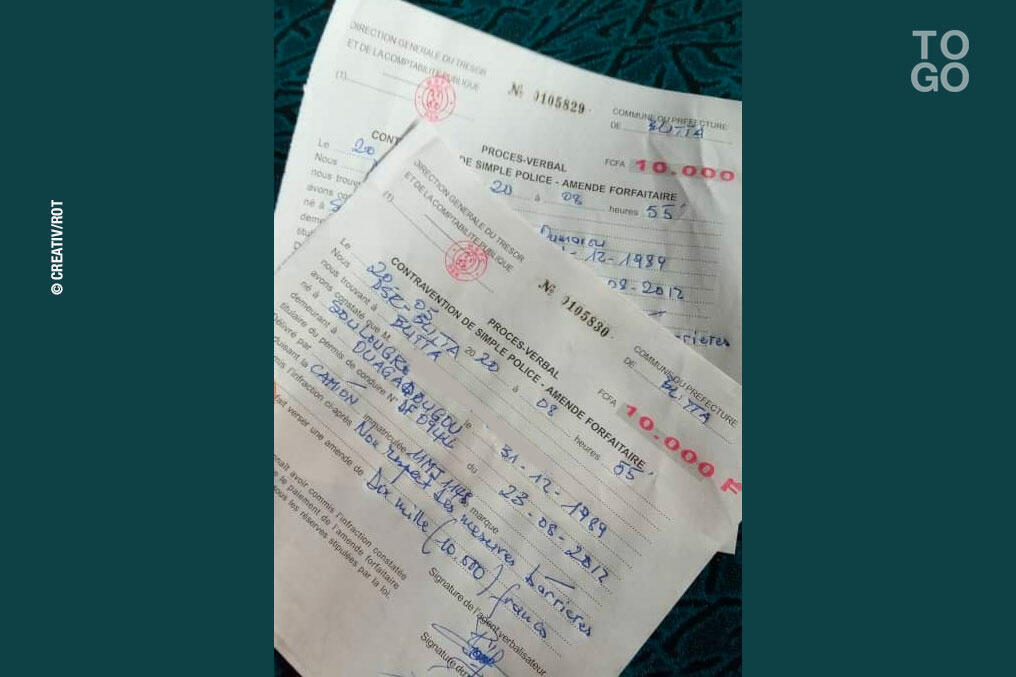 TO
GO
© CREATIV/ROT
DIRECTION GENERALE DU TRESOR
ET DE LA COMPTABILITE PUBLIQUE
(1)
№ 0105829
COMMUNE OU PREFECTURE
DE BLITTA
FCFA 10.000
PROCES-VERBAL
DE SIMPLE POLICE - AMENDE FORFAITAIRE
CONT
Le 20
20 à 08 heures 55'
Nous
nous trouv
avons co
12-1989
né à
08-2012
deme
titul
rrières
DIRECTION GENERALE DU TRESOR
ET DE LA COMPTABILITE PUBLIQUE
(1)
№ 0105830
COMMUNE OU PREFECTURE
DE BLITTA
FCFA 10.000 F
PROCES-VERBAL
CONTRAVENTION DE SIMPLE POLICE - AMENDE FORFAITAIRE
Le 20-05 2020 à 08 heures 55'
Nous BLITTA
nous trouvant à BLITTA
avons constaté que M.
né à le 31-12-1989
demeurant à OUAGADOUGOU
titulaire du permis de conduire N° du 23-08-2012
Délivré par
uisant la CAMION immatriculée marque
mis l'infraction ci-après Non respect des mesures barrières
fait verser une amende de Dix mille (10.000) francs
Signature de l'agent verbalisateur
nait avoir commis l'infraction constatée
e le paiement de l'amende forfaitaire
sous les réserves stipulées par la loi.
Signature du